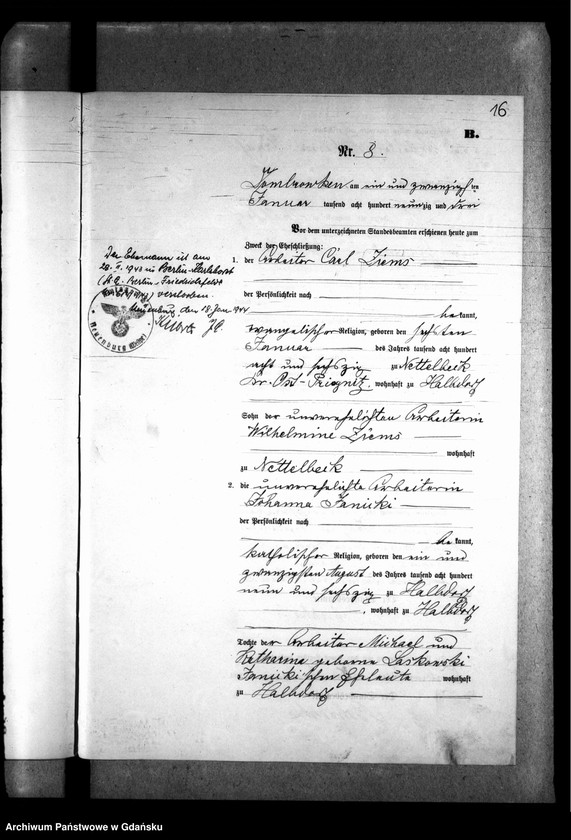 16
B.
Nr. 8.
Dombrowken am ein und zwanzigsten
Januar tausend acht hundert neunzig und drei
Vor dem unterzeichneten Standesbeamten erschienen heute zum
Zweck der Eheschließung:
1. der Arbeiter Carl Ziems
der Persönlichkeit nach
bekannt,
evangelischer Religion, geboren den sechsten
Januar des Jahres tausend acht hundert
acht und sechszig zu Nettelbeck
Kr. Ost-Priegnitz, wohnhaft zu Halbdorf
Sohn der unverehelichten Arbeiterin
Wilhelmine Ziems
wohnhaft
zu Nettelbeck
2. die unverehelichte Arbeiterin
Johanna Janicki
der Persönlichkeit nach
bekannt,
katholischer Religion, geboren den ein und
zwanzigsten August des Jahres tausend acht hundert
neun und sechszig zu Halbdorf
, wohnhaft zu Halbdorf
Tochter der Arbeiter Michael und
Katharina geborne Laskowski
Janicki'schen Eheleute wohnhaft
zu Halbdorf
Der Ehemann ist am
1943 in Berlin-Karlshorst
(St.A. Berlin-Friedrichsfelde
verstorben.
Neuenburg, den 18. Jan. 1944
Neuenburg (Westpr.)
Archiwum Państwowe w Gdańsku